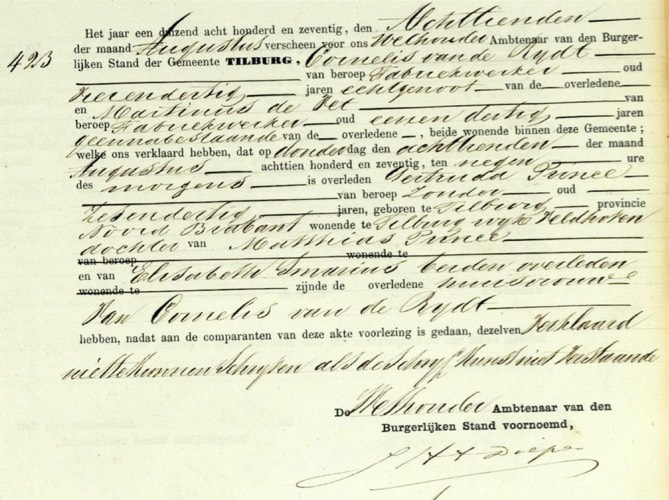 Het jaar een duizend acht honderd en zeventig, den Achttienden
der maand Augustus verscheen voor ons Wethouder Ambtenaar van den Burger-
423
lijken Stand der Gemeente TILBURG, Cornelis van de Rydt
van beroep Fabriekwerker oud
Vierendertig jaren echtgenoot van de overledene
en Martinus de Vet van
beroep Fabriekwerker oud eenen dertig jaren
geennabestaande van de overledene, beide wonende binnen deze Gemeente;
welke ons verklaard hebben, dat op donderdag den achttienden der maand
Augustus achttien honderd en zeventig, ten negen ure
des morgens is overleden Gertruda Prince
van beroep Zonder oud
Zesendertig jaren, geboren te Tilburg provincie
Noord Brabant wonende te Tilburg wyk Veldhoven
dochter van Matthias Prince
van beroep wonende te
en van Elisabeth Smarius beiden overleden
wonende te zijnde de overledene huisvrouw
Van Cornelis van de Rydt
hebben, nadat aan de comparanten van deze akte voorlezing is gedaan, dezelven Verklaard
niet te kunnen Schryven als de Schryf Kunst niet Verstaande
De Wethouder Ambtenaar van den
Burgerlijken Stand voornoemd,